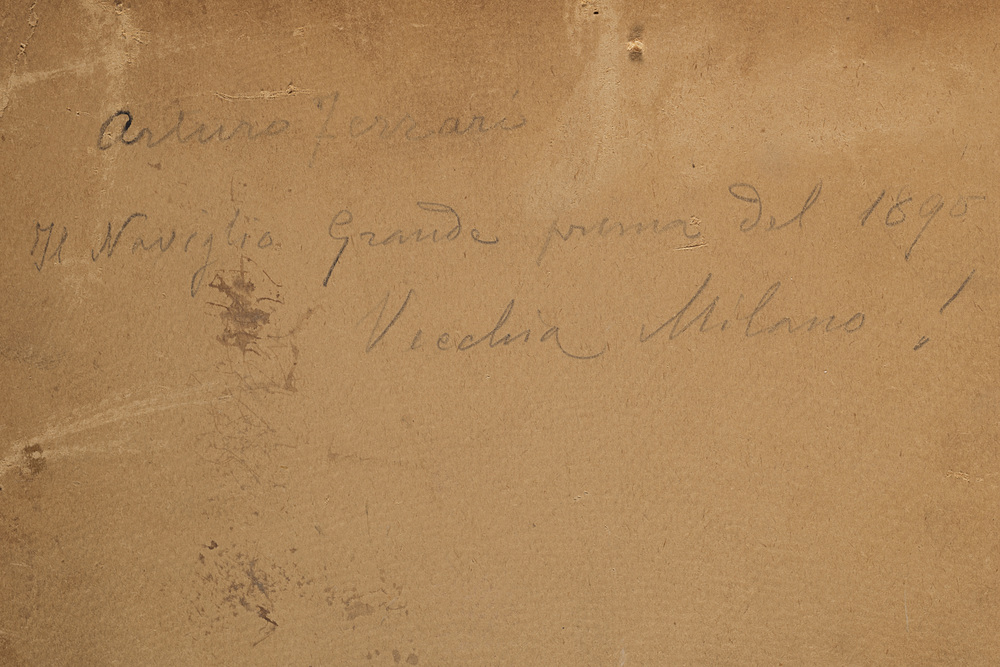 Arturo Ferrari
Il Naviglio Grande prima del 1895
Vecchia Milano !